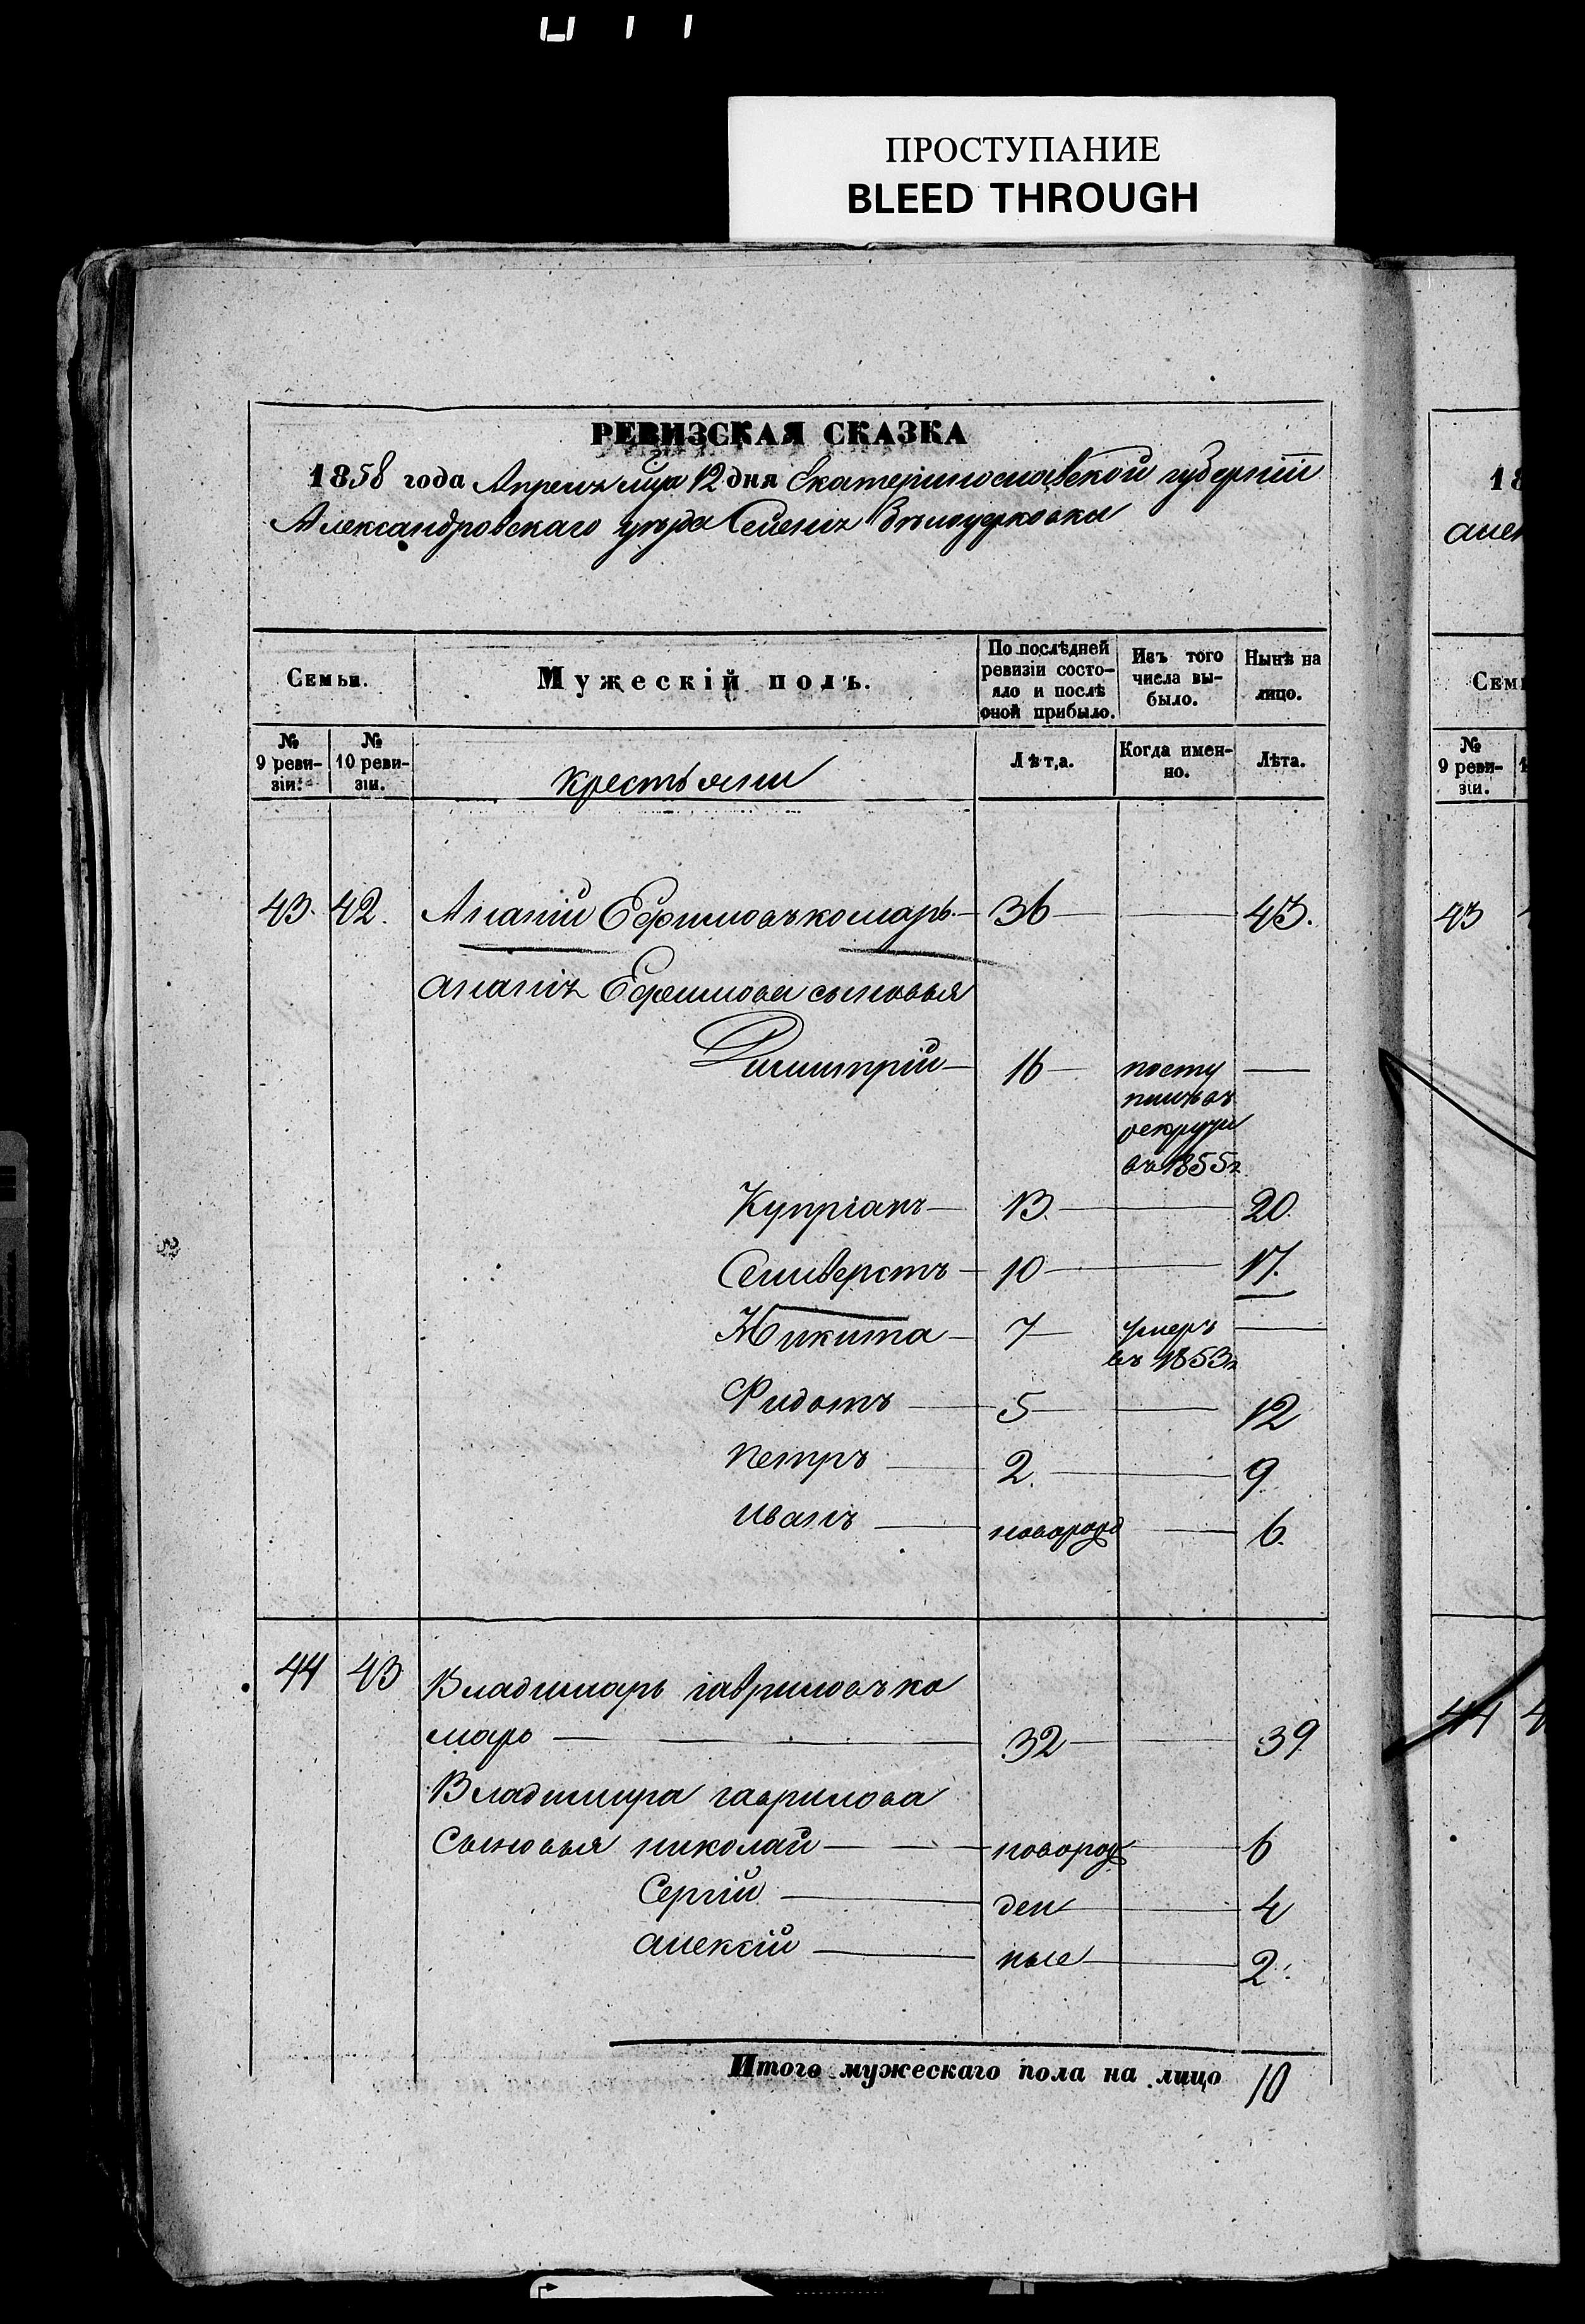 ПРОСТУПАНИЕ
BLEED THROUGH
РЕВИЗСКАЯ СКАЗКА
1858 года Апреля мца 12 дня Екатеринославской губернiи
Александровскаго уезда Бѣлоцерковки
Семьи.
Мужескiй полъ.
По послѣдней ревизiи состо-
яло и послѣ оной прибыло.
Изъ того числа вы-
было.
Нынѣ на лицо.
№ 9 реви-
зiи.
№ 10 реви-
зiи.
крестьяни
Лѣта.
Когда имен-
но.
Лѣта.
43. 42. Ананiй Ефимовъ комарь 36 43.
Ананiя Ефимова сыновья
Димитрiй 16 посту
пилъ въ
рекруты
въ 1855г
Купрiянъ 13 20.
Селиверстъ 10 17.
Никита 7 умеръ
въ 1853г
Фидотъ 5 12
Петръ 2. 9
Иванъ новорожд 6.
44 43 Владимиръ гавриловъ ко
марь 32 39
Владимира гаврилова
Сыновья николай новорож 6
Сергiй ден 4
алексiй ные 2.
Итого мужескаго пола на лицо 10
18
алек
Семь
№ 9 реви-
зiи.
43
44 4